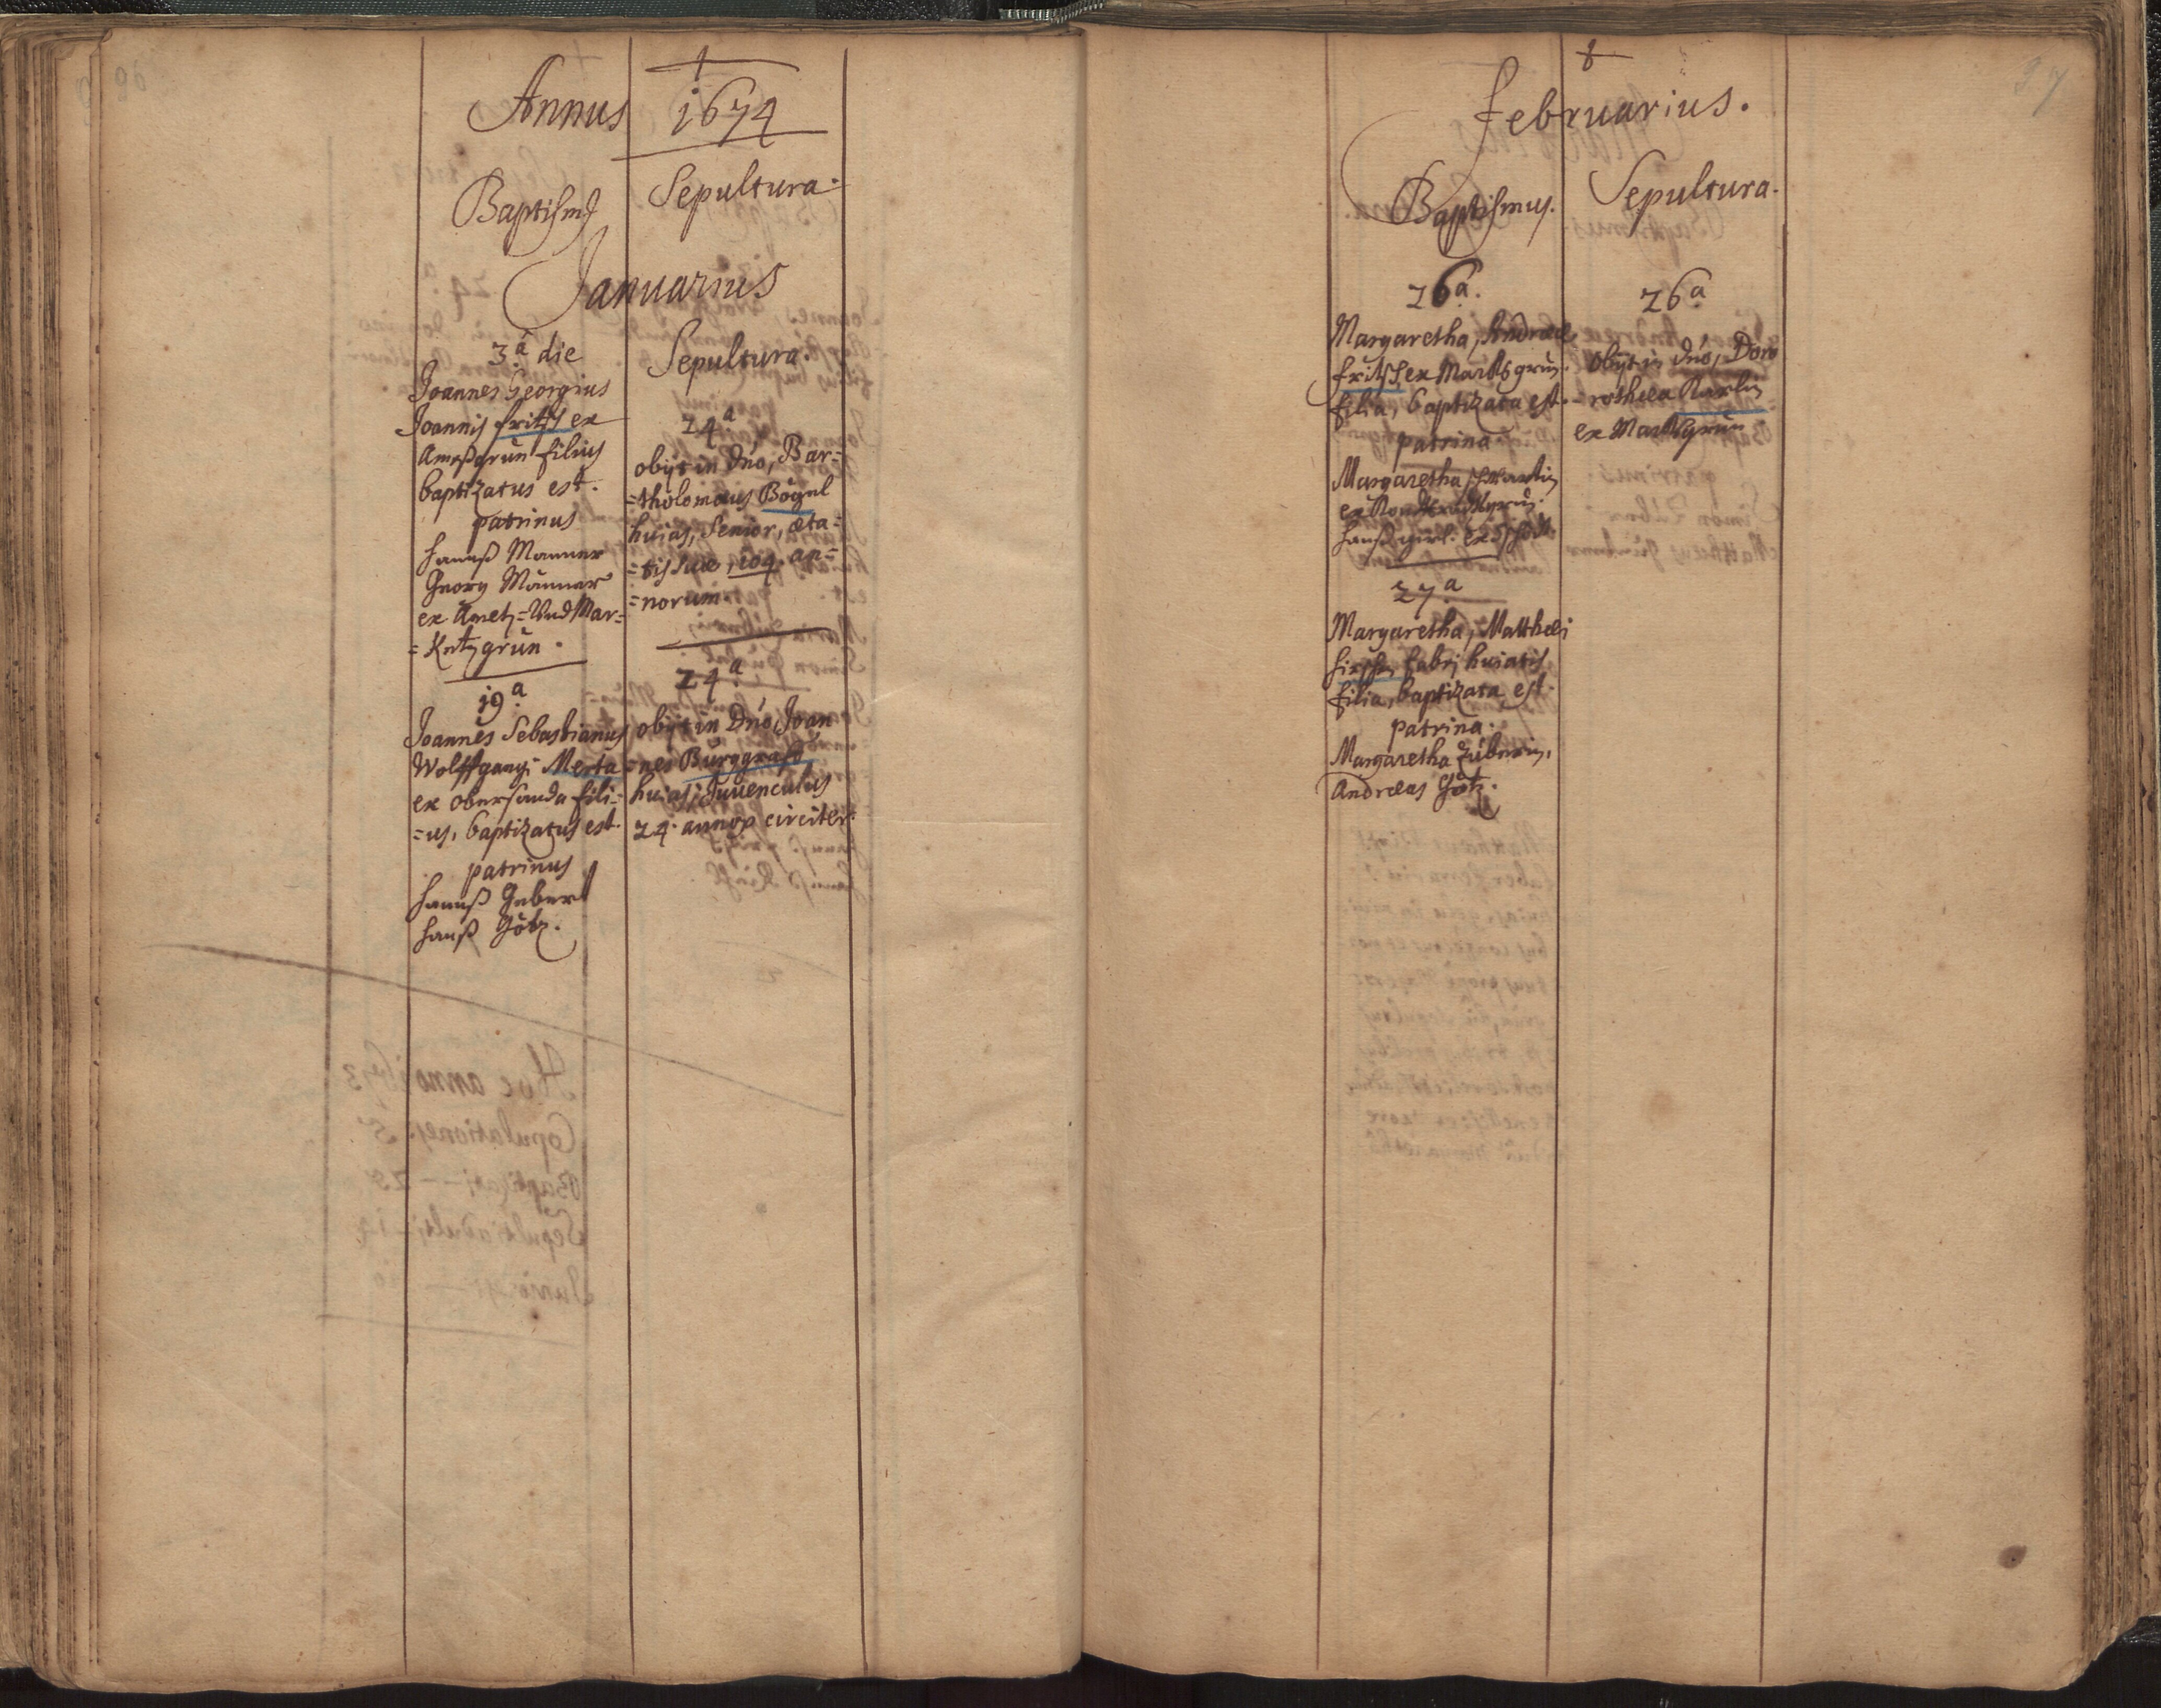 Annus 1674
Baptismꝰ
Sepultura.
Januarius
3.a die
Joannes Georgius
Joannis fritsch ex
Ameßgrün filius
baptizatus est.
patrinus
Hannß Manner
Georg Männer
ex Amet= Und Mar=
=kntzgrün.
19.a
Joannes Sebastianus
Wolffgangi Merta
ex obersanda fili=
=us, baptizatus est.
patrinus
Hannß Geberl
Hanß Götz.
Sepultura.
24.a
obijt in Dno, Bar=
=tholomaeus Bögnl
huias, Senior, aeta=
=tis suae, 104. an=
=norum.
24.a
obijt in Dno, Joan
=nes Burggraff,
huias, Juuenculus
24. annoꝝ circiter.
37
Februarius.
Baptismus.
26.a
Margaretha, Andreae
fritsch ex Marktgrün.
filia, baptizata est.
patrina
Margaretha
ex
Hanß
27.a
Margaretha, Matthaei
fabri huiatis
filia, baptizata est.
patrina.
Margaretha Züberin,
Andreas Götz.
Sepultura.
26.a
obijt in Dno, Doro
=rothea Karlin
ex Marktgrün